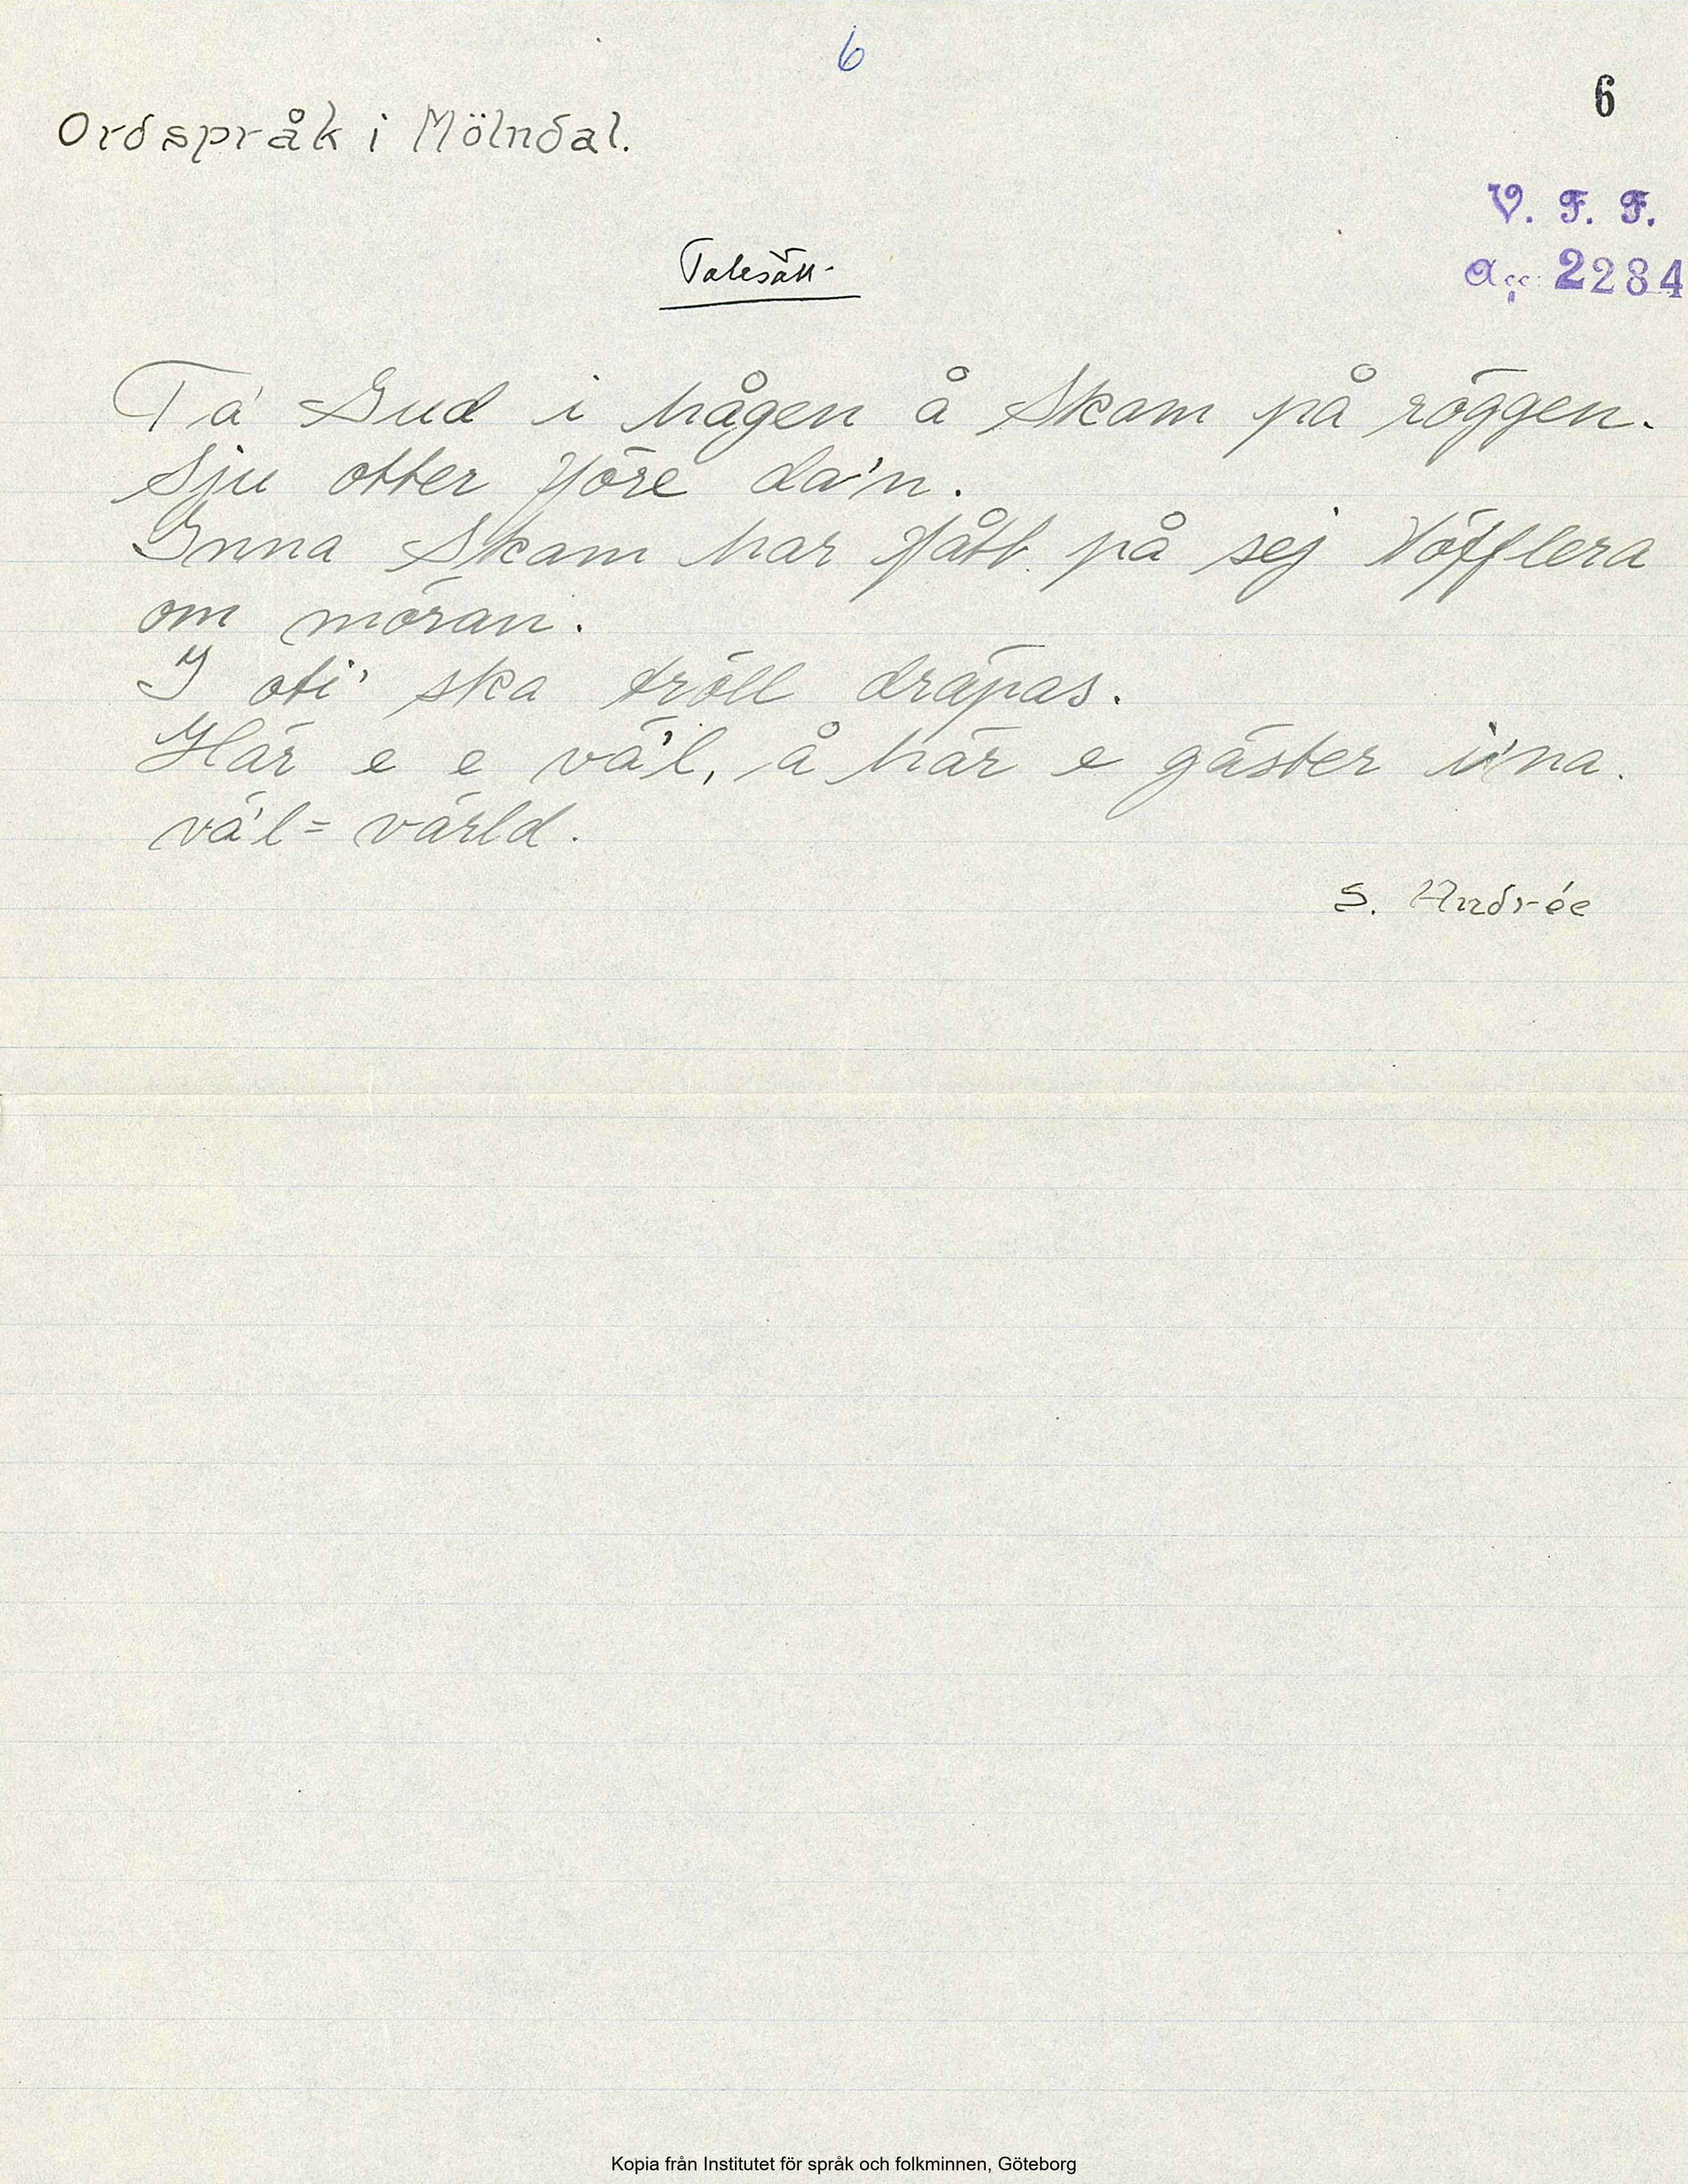 6
6
Ordspråk i Mölndal.
V. F. F.
Acc 2284
Talesätt
Ta' Gud i hågen å Skam på röggen.
Sju otter före da'n.
Inna Skam har fått på sej töfflera
om möran.
I öti' ska tröll dräpas.
Här e e vä'l, å här e gäster i'na.
vä'l = värld.
S. Andrée
Kopia från Institutet för språk och folkminnen, Göteborg